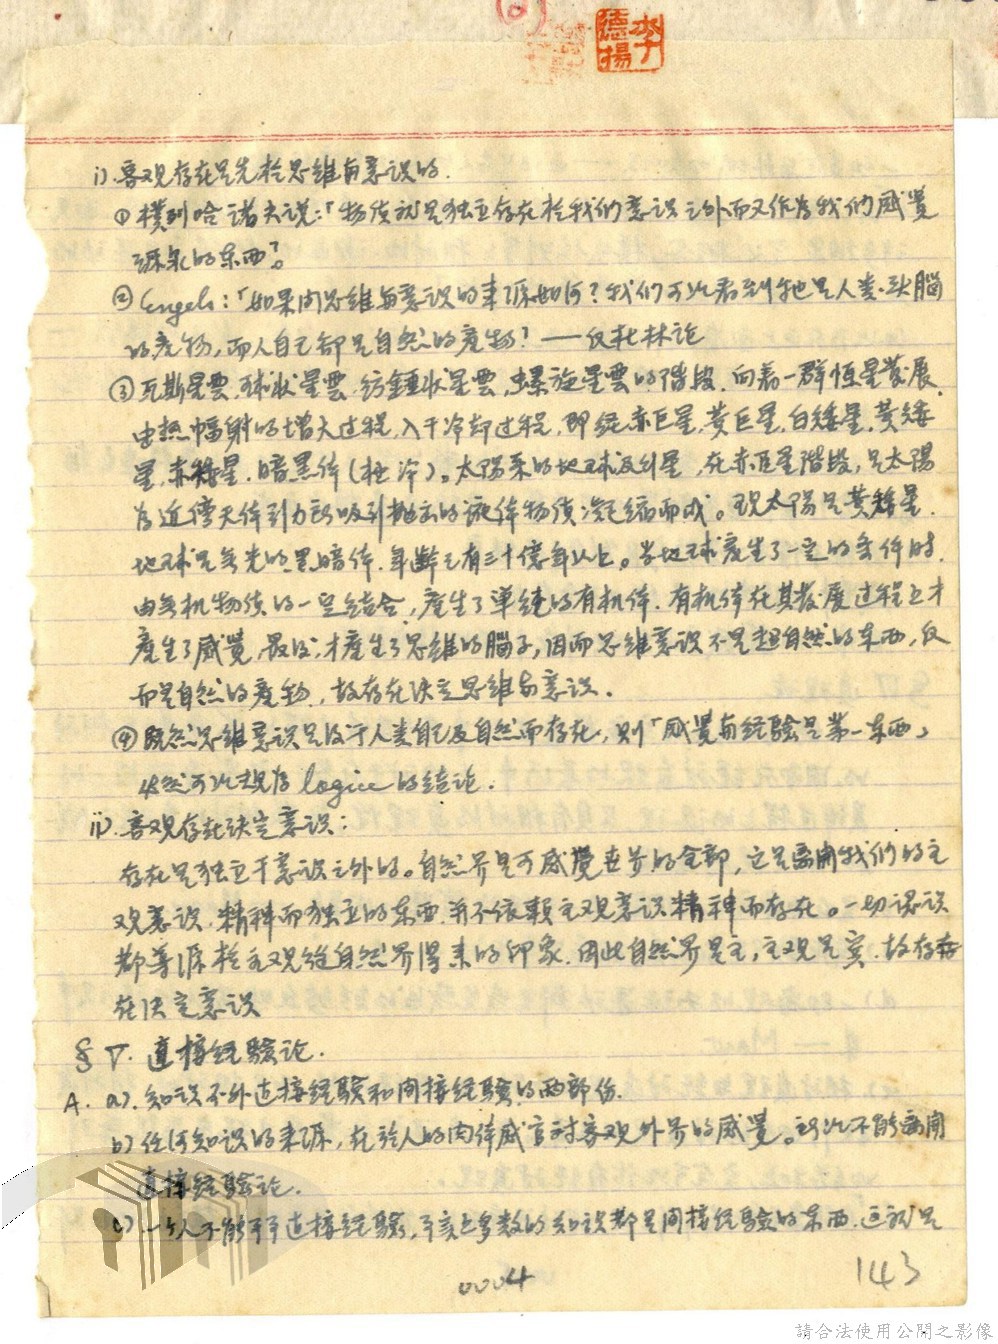 (2)
李德揚
i). 客观存在是先於思维与意识的.
① 樸列哈諾夫说:「物质就是独立存在於我们意识之外而又作为我们感覺
源泉的东西」。
② Engels:「如果问思维与意识的来源如何?我们可以看到牠是人类头腦
的產物,而人自己都是自然的產物」——反杜林论
③ 瓦斯星雲,球状星雲,紡錘状星雲,螺旋星雲的階段,向着一群恒星發展.
由热幅射的增大过程,入于冷却过程,即经赤巨星,黄巨星,白矮星,黄矮
星,赤矮星,暗黑体(極冷)。太陽系的地球及行星,在赤巨星階段,是太陽
为近傍天体引力所吸引抛出的液体物质凝縮而成。现太陽是黄矮星.
地球是無光的黑暗体,年齡已有三十億年以上。当地球產生了一定的条件时.
由無机物质的一定结合,產生了單純的有机体.有机体在其發展过程上才
產生了感覺,最後,才產生了思维的腦子,因而思维意识不是超自然的东西,反
而是自然的產物,故存在决定思维与意识.
④ 既然思维意识是後于人类自己及自然而存在,则「感覺与经验是第一东西」
必然可以视为 logice 的结论.
ii). 客观存在决定意识:
存在是独立于意识之外的。自然界是可感覺世界的全部,它是离開我们的主
观意识,精神而独立的东西,并不依賴主观意识精神而存在。一切认识
都導源於主观從自然界得来的印象.因此自然界是主,主观是賓.故存存
在决定意识
§ V. 直接经验论.
A. a). 知识不外直接经验和间接经验的两部份.
b) 任何知识的来源,在於人的肉体感官对客观外界的感覺。所以不能离開
直接经验论.
c) 一个人不能事事直接经验,事实上多数的知识都是间接经验的东西.这就是
0004
143
請合法使用公開之影像